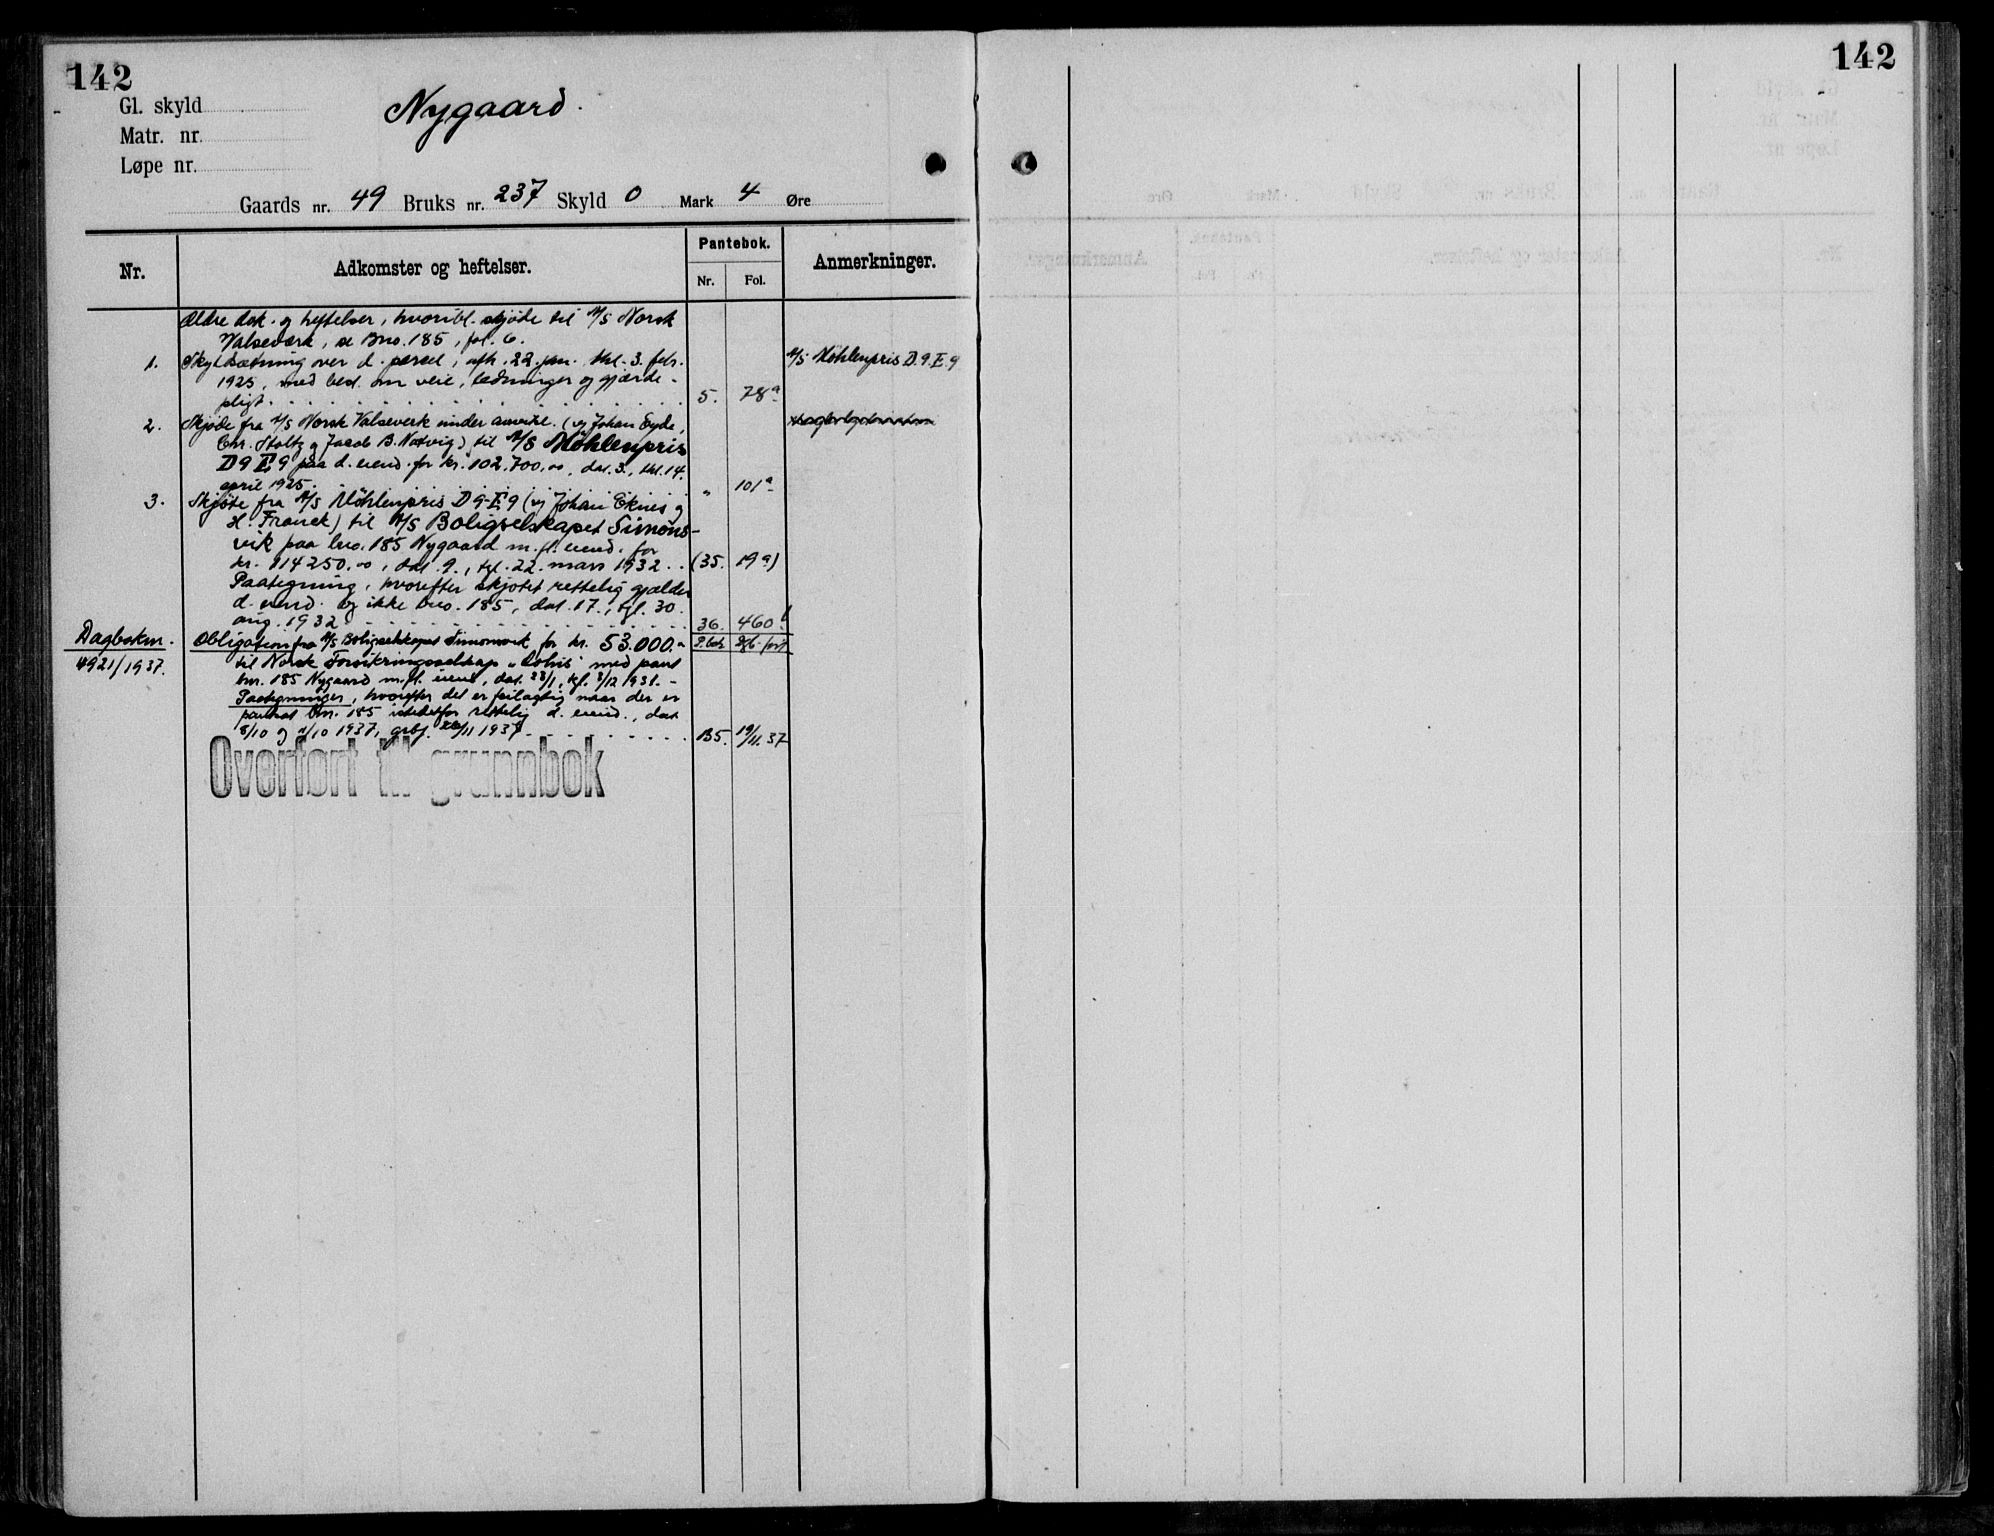 142
Gl. skyld
Nygaard.
Matr. nr.
Løpe nr.
Gaards nr. 49 Bruks nr. 237 Skyld 0 Mark 4 Øre
Nr. Adkomster og heftelser. Pantebok. Anmerkninger.
Nr. Fol.
Ældre dok. og heftelser, hvoribl. skjøde til A/S Norsk
Valseverk, se Bno. 185, fol. 6.
1. Skyldsætning over d. parcel, afh. 22. jan. thl. 3. febr. A/S Møhlenpris D.9.E.9
1925, med best. om veie, ledninger og gjærde-
pligt. 5. 78a
2. Skjøde fra A/S Norsk Valseverk under avvikl. (v/ Johan Eyde,
Chr. Stoltz og Jacob B. Natvig) til A/S Møhlenpris
D9 E9 paa d. eiend. for kr. 102.700.00, dat. 3., thl. 14.
april 1925. " 101a
3. Skjøte fra A/S Møhlenpris D9-E9 (v/ Johan Eknes og
H. Franck) til A/S Boligselskapet Simons-
vik paa bno. 185 Nygaard m.fl. eiend. for
kr. 114250.00, dat. 9., tgl. 22. mars 1932 (35. 19a)
Paategning, hvorefter skjøtet rettelig gjælder
d. eiend. og ikke bno. 185, dat. 17., tgl. 30.
aug. 1932 36. 460b
Dagboken. Obligation fra A/S Boligselskapet Simonsvik for kr. 53.000.-
4921/1937. til Norsk Forsikringsselskap "Lohis" med pant
bnr. 185 Nygaard m.fl. eiend., dat. 23/1, tgl. 3/12 1931.-
Paategninger, hvorefter det er feilagtig naar der er
pantsat bnr. 185 istedetfor rettelig d. eiend., dat.
8/10 og /10 1937, grbf. /11 1937 B5. 19/11.37
Overført til grunnbok
142